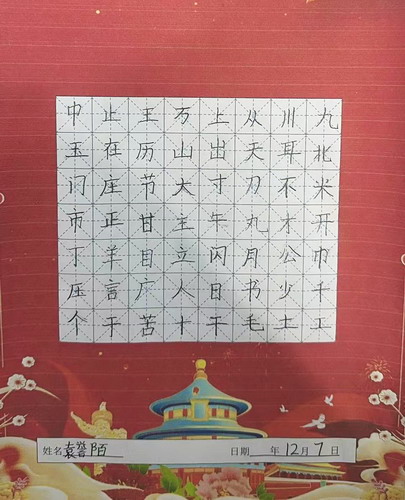 中止王万上从川九
玉在历山出天耳北
门庄节大寸刀不米
市正甘主午丸才开
丁羊目立闪月公巾
压言广人日书少千
个干苦十干毛土工
姓名 袁誉陌 日期 年12月7日